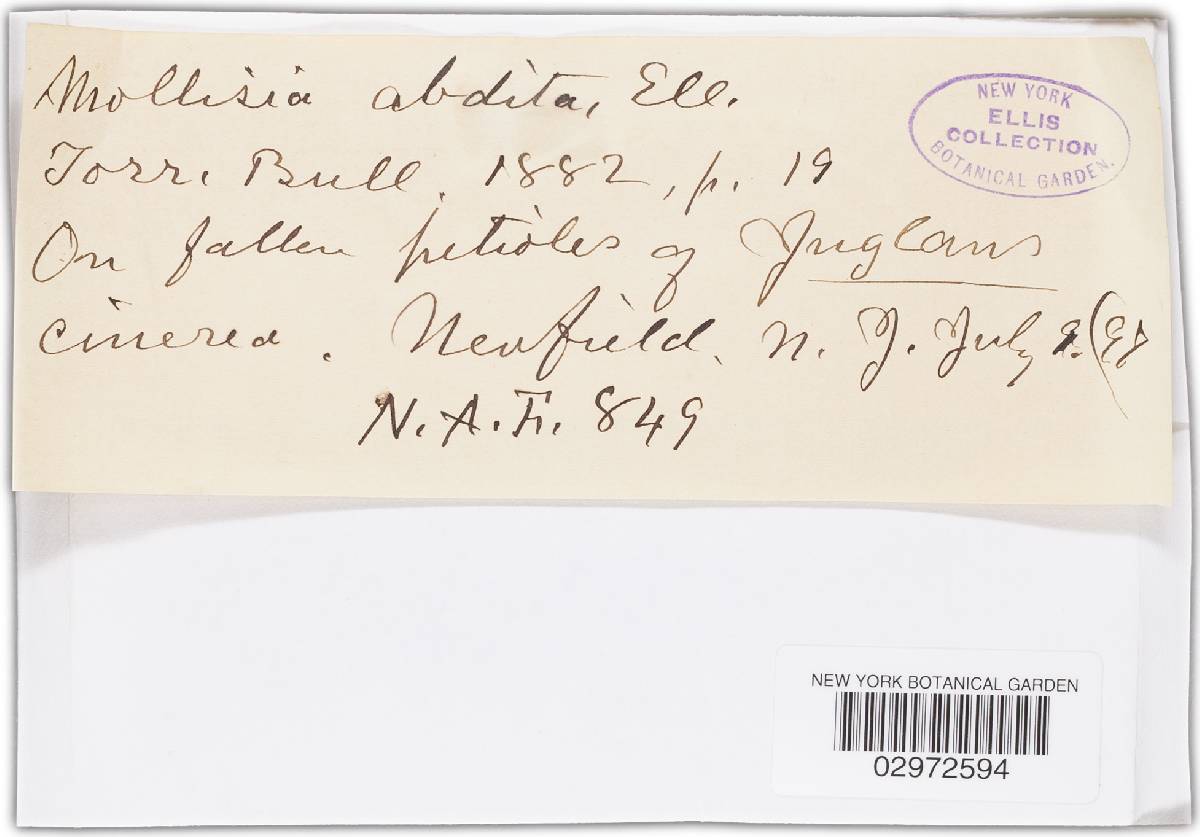 Mollisia abdita, Ell.
Torr. Bull. 1882, p. 19
On fallen petioles of Juglans
cinerea. Newfield, N. J. July
N.A.F. 849
NEW YORK
ELLIS
COLLECTION
BOTANICAL GARDEN.
NEW YORK BOTANICAL GARDEN
02972594